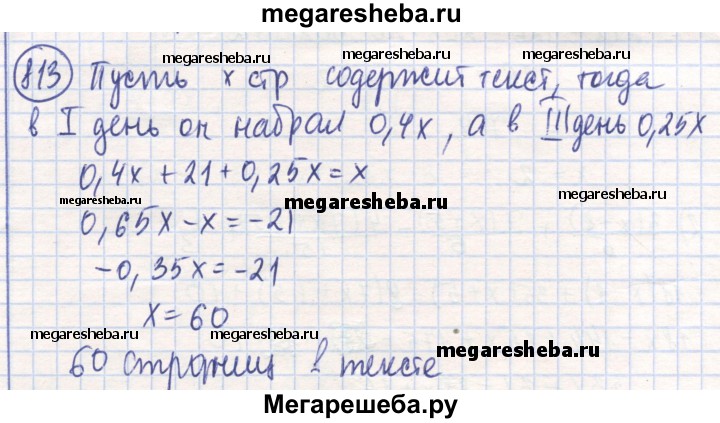 megaresheba.ru
megaresheba.ru megaresheba.ru megaresheba.ru
813 Пусть x стр содержит текст, тогда
в I день он набрал 0,4x, а в III день 0,25x
0,4x + 21 + 0,25x = x
megaresheba.ru megaresheba.ru megaresheba.ru
0,65x - x = -21
-0,35x = -21
x = 60
megaresheba.ru megaresheba.ru megaresheba.ru
60 страниц в тексте
Мегарешеба.ру